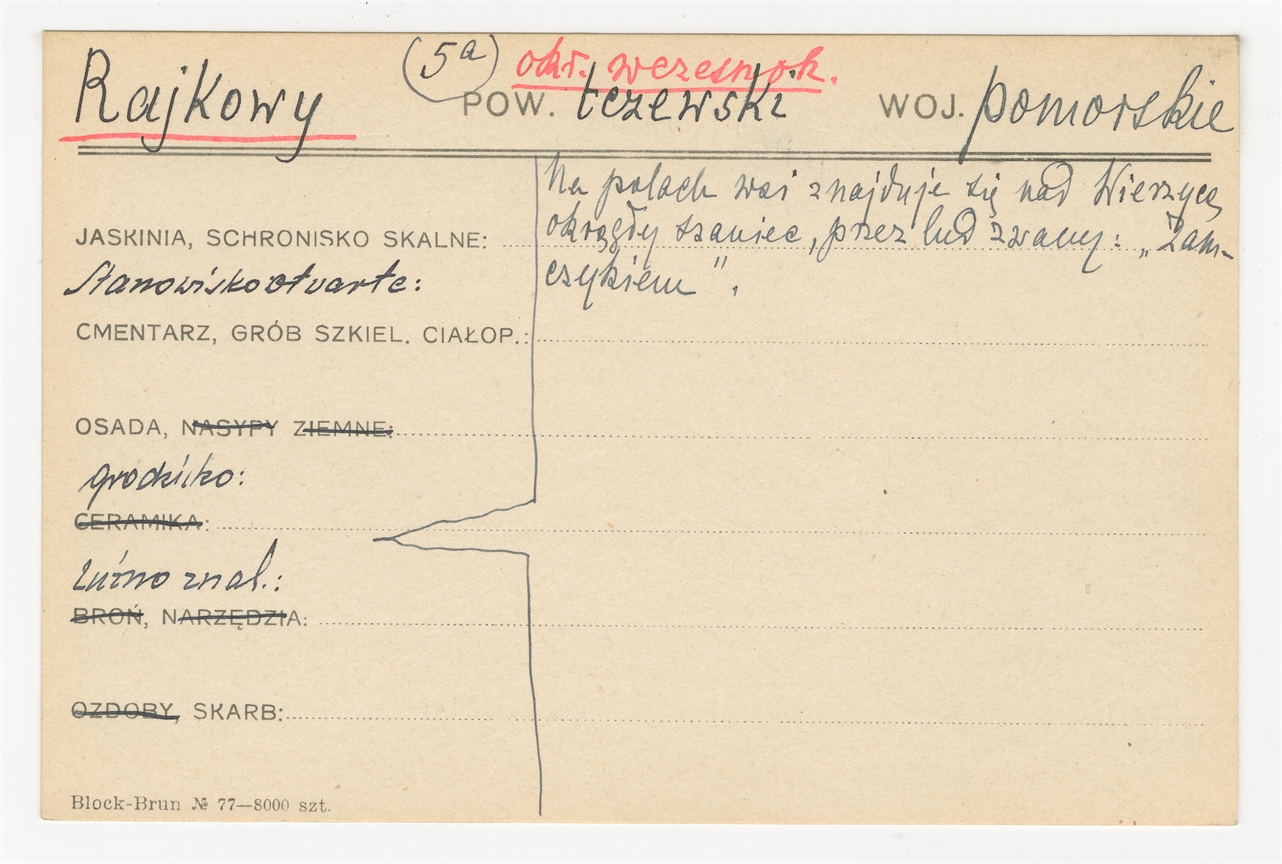 (5a) okr. wczesnośr.
Rajkowy POW. tczewski WOJ. pomorskie
Na polach wsi znajduje się nad Wierzycą
okrągły szaniec, przez lud zwany: „Zam-
czykiem".
JASKINIA, SCHRONISKO SKALNE:
Stanowisko otwarte:
CMENTARZ, GRÓB SZKIEL. CIAŁOP.:
OSADA, NASYPY ZIEMNE:
grodzisko:
CERAMIKA:
Luźno znal.:
BROŃ, NARZĘDZIA:
OZDOBY, SKARB:
Block-Brun № 77—8000 szt.